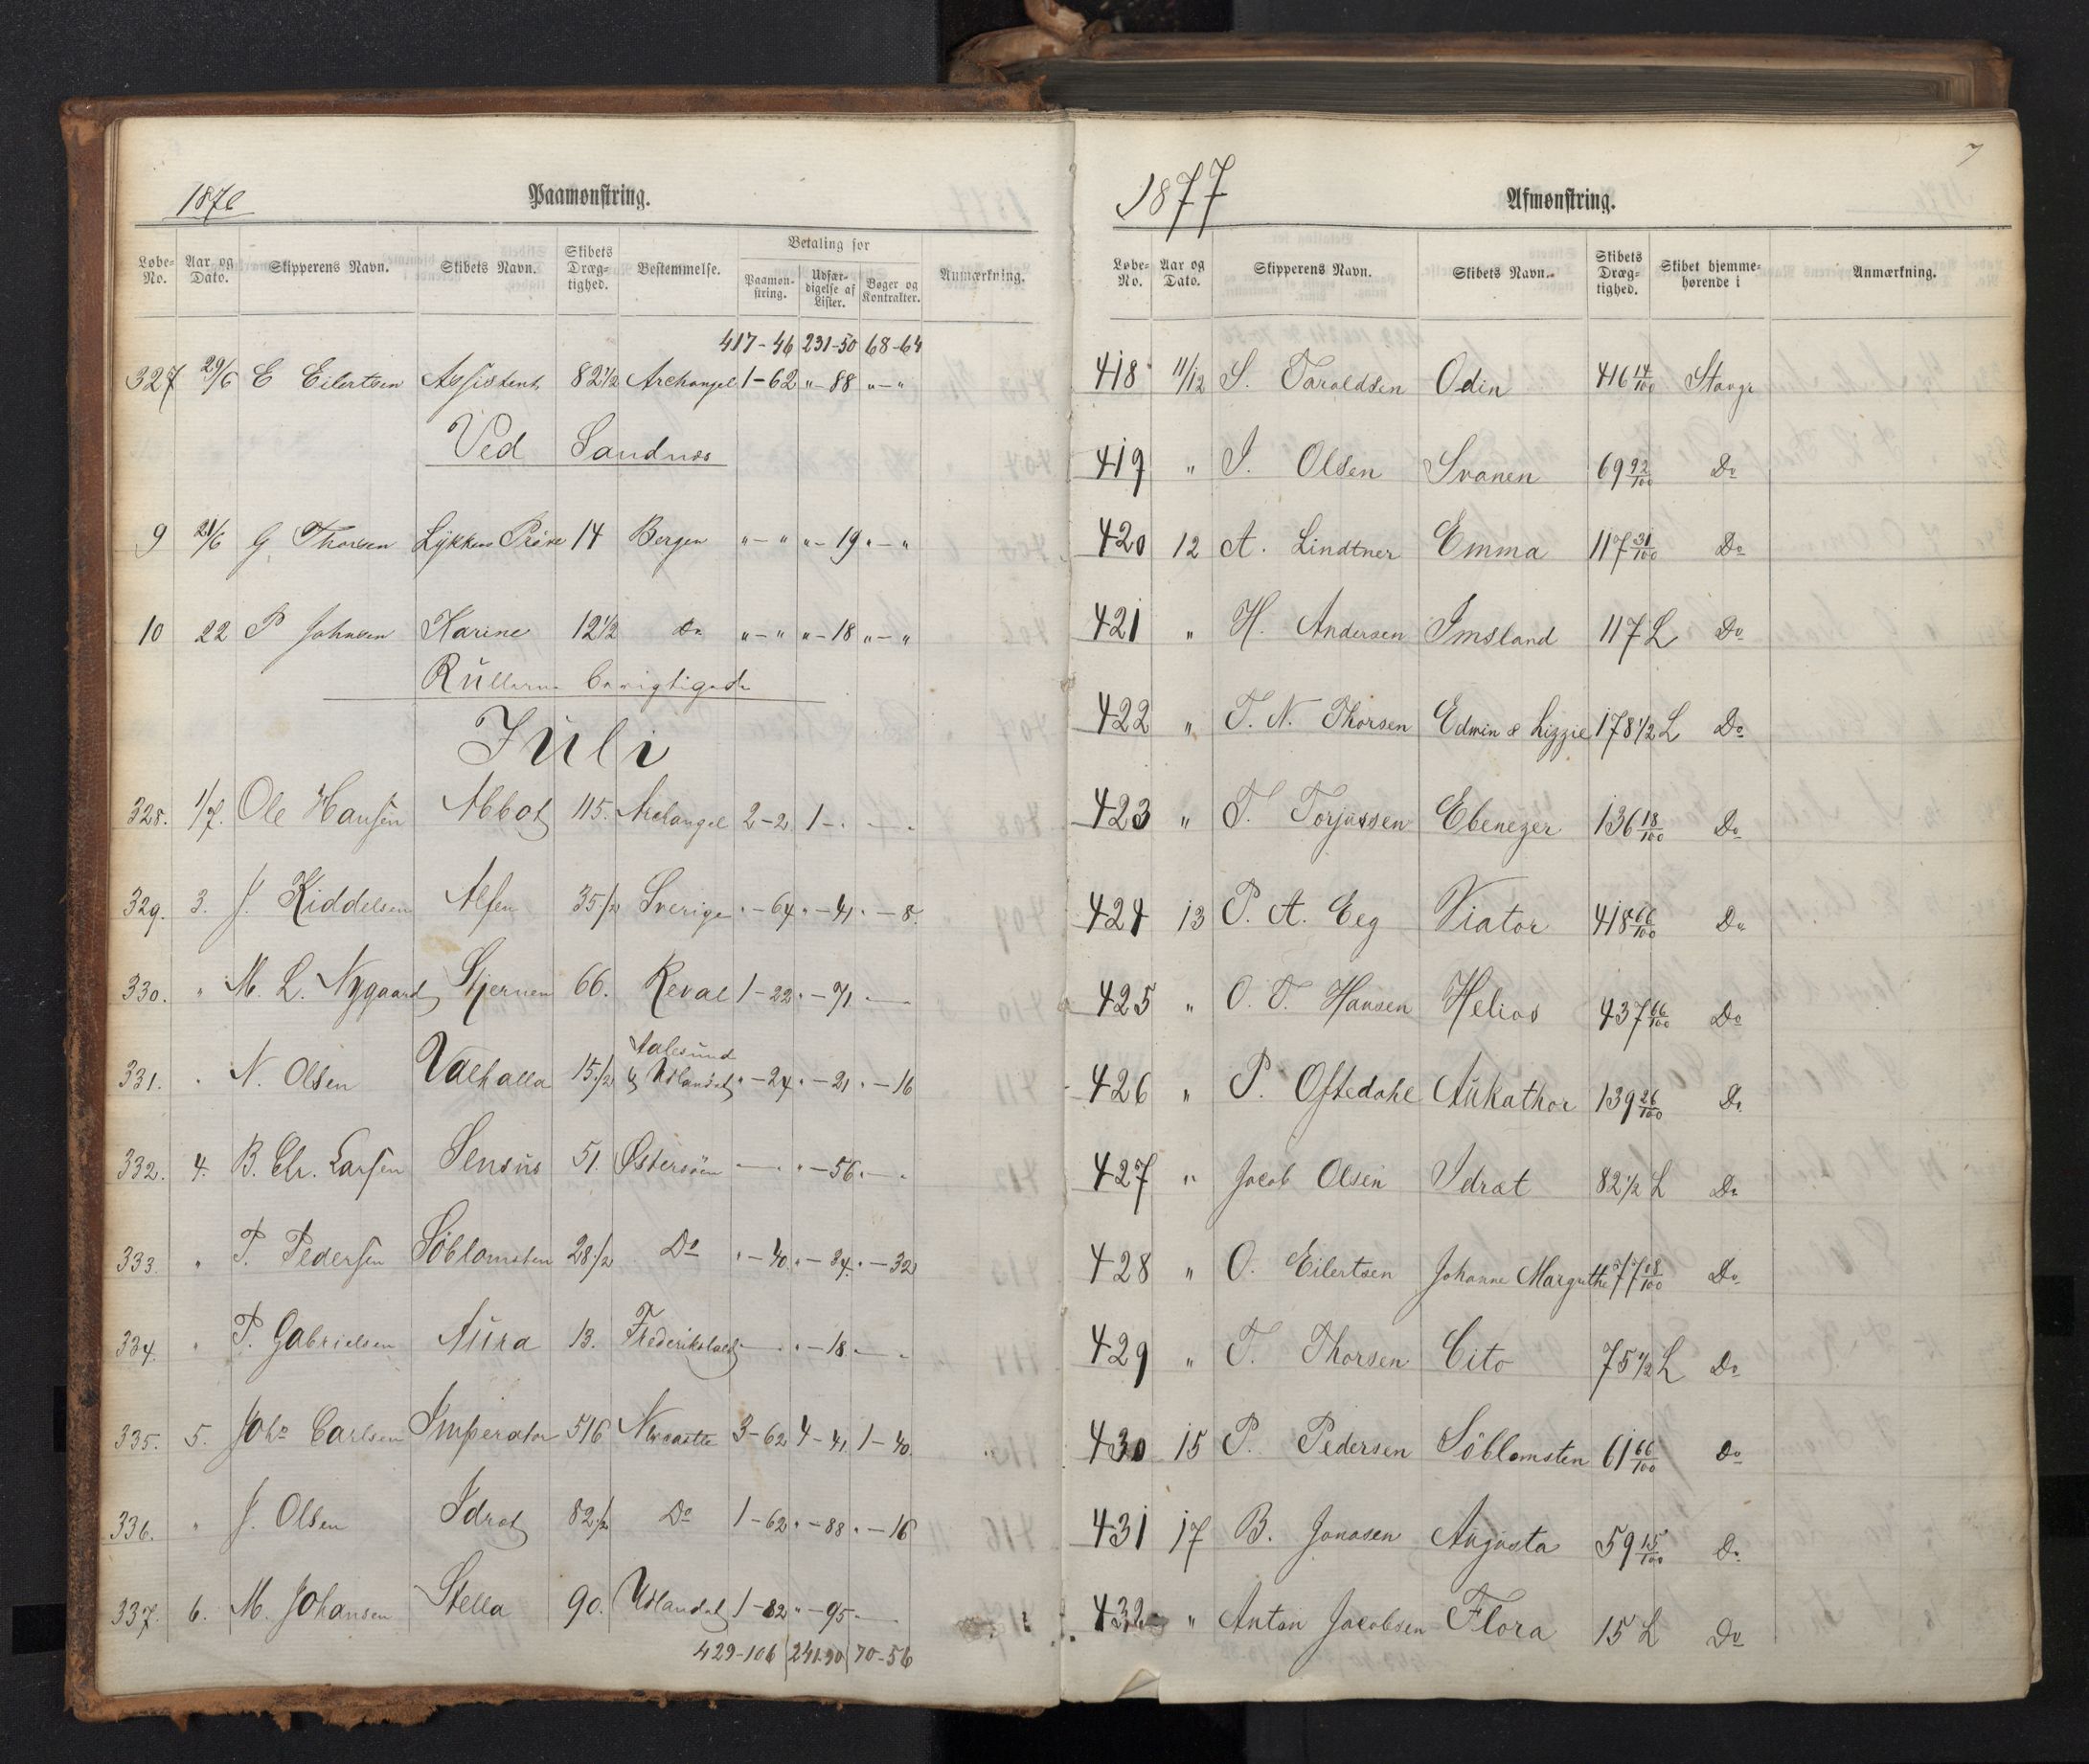 1876 Paamønstring.
Løbe-No. Aar og Dato. Skipperens Navn. Skibets Navn. Skibets Dræg-tighed. Bestemmelse. Betaling for Paamøn-string. Udfær-digelse af Lister. Bøger og Kontrakter. Anmærkning.
417-46 231-50 68-64
327 29/6 E Eilertsen Assistent 82 1/2 Archangel 1-62 "-88 "-"
Ved Sandnæs
9 21/6 G Thorsen Lykkens Prøve 14 Bergen "-" "-19 "-"
10 22 P Johnsen Karine 12 1/2 Do "-" "-18 "-"
Rullerne berigtigede
Juli
328. 1/7. Ole Hansen Abbot 115. Archangel 2-2 1-. -.
329. 3. J. Kiddelsen Alfen 35 1/2 Sverige "-64 "-41 "-8.
330. " M. L. Nygaard Stjernen 66. Reval 1-22 "-71 -
331. " N. Olsen Valhalla 15 1/2 Aalesund & Udlandet "-24 "-21 "-16
332. 4. B. Chr. Larsen Sensus 51. Østersøen -. "-56 "-.
333. " P. Pedersen Söblomsten 28 1/2 Do "-40. "-34. "-32
334. " P. Gabrielsen Aura 13. Frederikshald -. "-18. -.
335. 5. Johs Carlsen Imperator 516 Newcastle 3-62 4-41. 1-40.
336. " J. Olsen Idræt 82 1/2 Do 1-62 "-88 "-16
337. 6. M. Johansen Stella 90. Udlandet 1-82 "-95 -
429-106 241-90 70-56
7
1877 Afmønstring.
Løbe-No. Aar og Dato. Skipperens Navn. Skibets Navn. Skibets Dræg-tighed. Skibet hjemme-hørende i Anmærkning.
418 11/12 S. Taraldsen Odin 416 14/100 Stavgr
419 " S. Olsen Svanen 69 92/100 Do
420 12 A. Lindtner Emma 117 31/100 Do
421 " H. Andersen Imsland 117 L Do
422 " T. N. Thorsen Edwin & Lizzie 178 1/2 L Do
423 " T. Torjussen Ebenezer 136 18/100 Do
424 13 P. A. Eeg Viator 418 66/100 Do
425 " O. T. Hansen Helios 437 66/100 Do
426 " P. Oftedahl Aukathor 139 26/100 Do
427 " Jacob Olsen Idræt 82 1/2 L Do
428 " O. Eilertsen Johanne Margrethe 77 08/100 Do
429 " T. Thorsen Cito 75 1/2 L Do
430 15 P. Pedersen Söblomsten 61 66/100 Do
431 17 B. Jonasen Augusta 59 15/100 Do
432 " Anton Jacobsen Flora 15 L Do